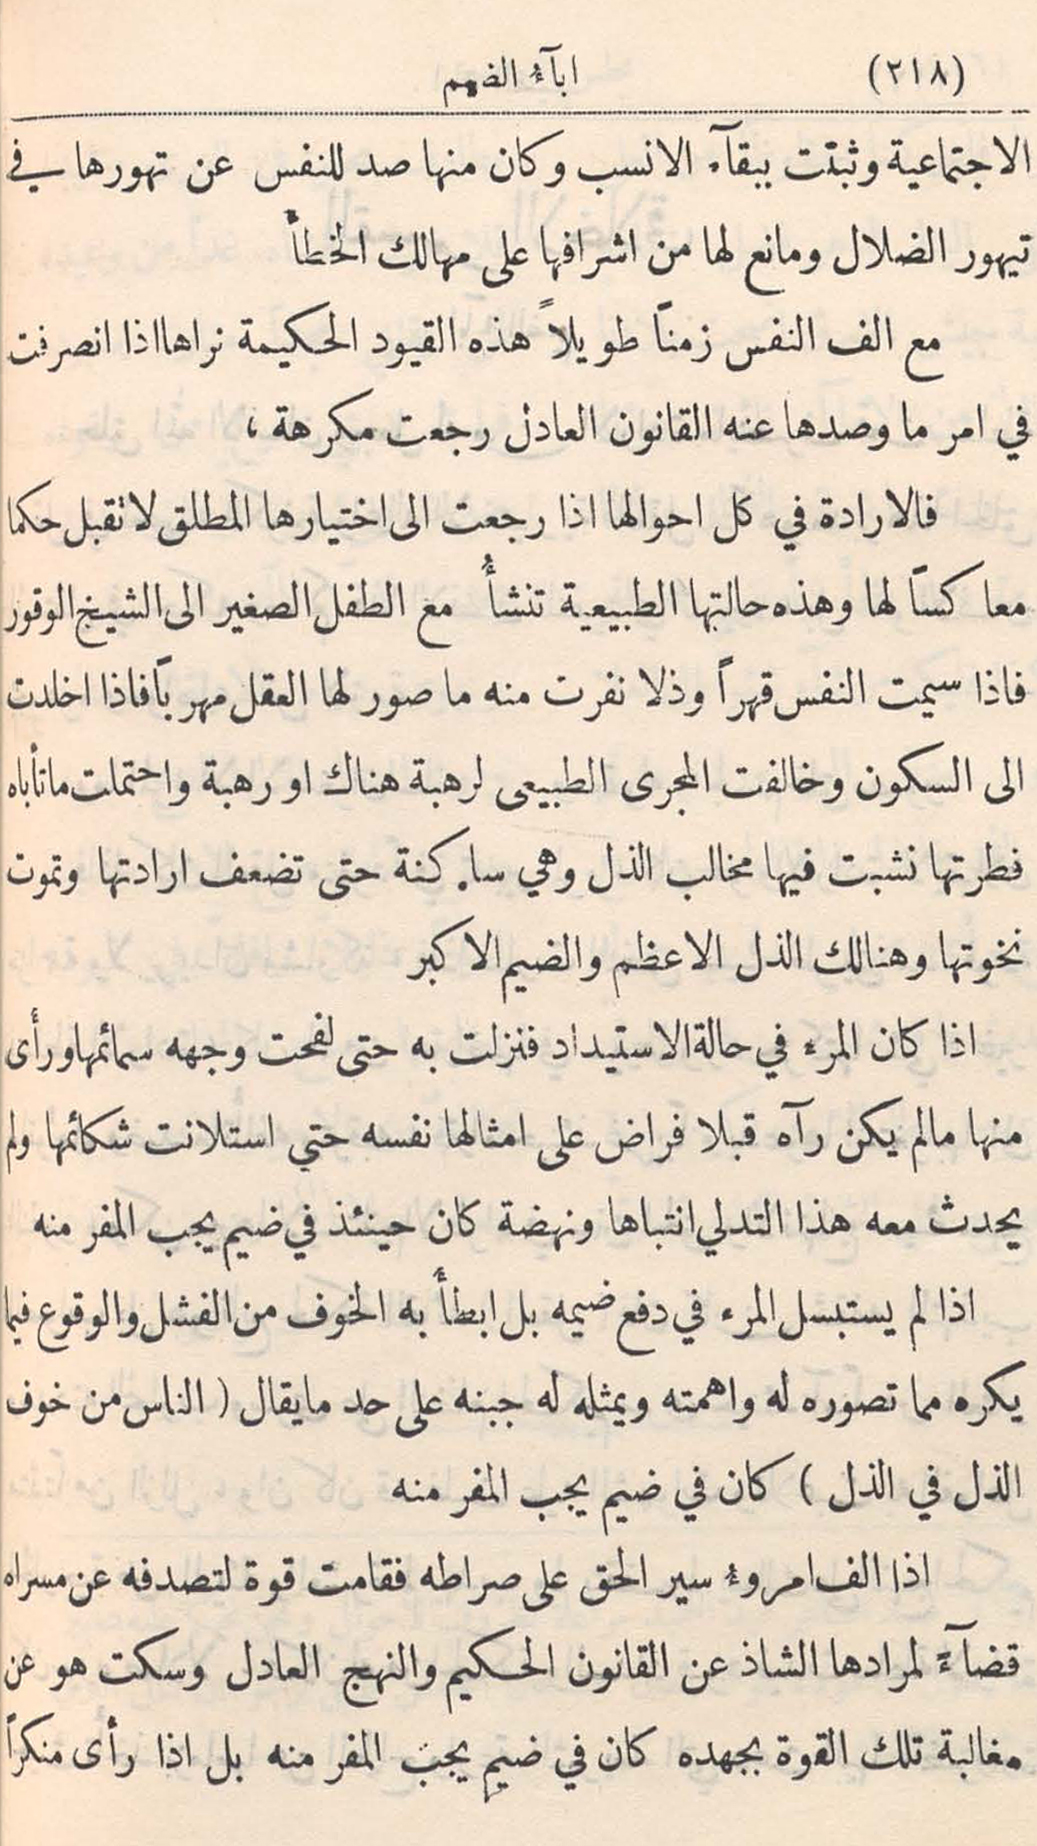 (٢١٨) ابآء الضيم
الاجتماعية وثبتت ببقآء الانسب وكان منها صد للنفس عن تهورها في
تيهور الضلال ومانع لها من اشرافها على مهالك الخطأ
مع الف النفس زمناً طويلاً هذه القيود الحكيمة نراها اذا انصرفت
في امر ما وصدها عنه القانون العادل رجعت مكرهة ،
فالارادة في كل احوالها اذا رجعت الى اختيارها المطلق لا تقبل حكما
معاكساً لها وهذه حالتها الطبيعية تنشأ مع الطفل الصغير الى الشيخ الوقور
فاذا سيمت النفس قهراً وذلا نفرت منه ما صور لها العقل مهرباً فاذا اخلدت
الى السكون وخالفت المجرى الطبيعى لرهبة هناك او رهبة واحتملت ما تأباه
فطرتها نشبت فيها مخالب الذل وهي ساكنة حتى تضعف ارادتها وتموت
نخوتها وهنالك الذل الاعظم والضيم الاكبر
اذا كان المرء في حالة الاستيداد فنزلت به حتى لفحت وجهه سمائمها ورأى
منها مالم يكن رآه قبلا فراض على امثالها نفسه حتي استلانت شكائمها ولم
يحدث معه هذا التدلي انتباها ونهضة كان حينئذ في ضيم يجب المفر منه
اذا لم يستبسل المرء في دفع ضيمه بل ابطأ به الخوف من الفشل والوقوع فيما
يكره مما تصوره له واهمته ويمثله له جبنه على حد ما يقال ( الناس من خوف
الذل في الذل ) كان في ضيم يجب المفر منه
اذا الف امروء سير الحق على صراطه فقامت قوة لتصدفه عن مسراه
قضآءً لمرادها الشاذ عن القانون الحكيم والنهج العادل وسكت هو عن
مغالبة تلك القوة بجهده كان في ضيم يجب المفر منه بل اذا رأى منكراً